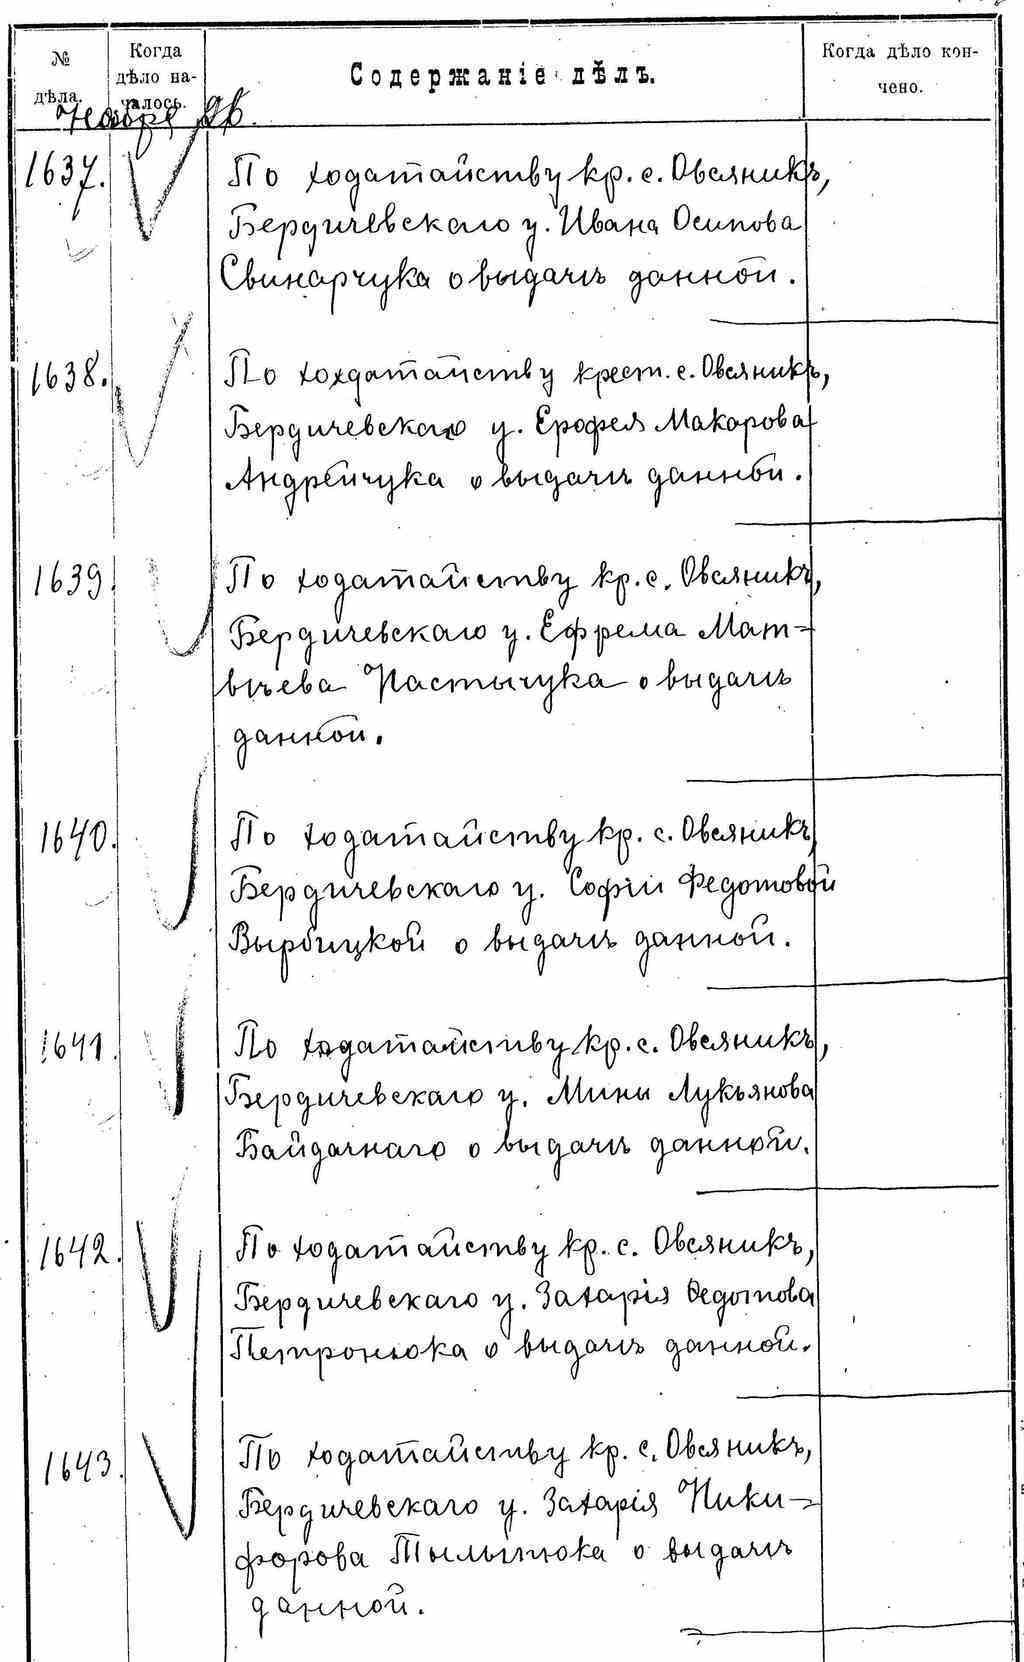 № дѣла.
Когда дѣло на-
чалось.
Содержаніе дѣлъ.
Когда дѣло кон-
чено.
Ноября
1637.
По ходатайству кр. с. Овсяникъ,
Бердичевскаго у. Ивана Осипова
Свинарчука о выдачѣ данной.
1638.
По ходатайству крест. с. Овсяникъ,
Бердичевскаго у. Ерофея Макарова
Андрейчука о выдачѣ данной.
1639.
По ходатайству кр. с. Овсяникъ,
Бердичевскаго у. Ефрема Мат-
вѣева Настычука о выдачѣ
данной.
1640.
По ходатайству кр. с. Овсяникъ,
Бердичевскаго у. Софіи Федотовой
Вырбицкой о выдачѣ данной.
1641.
По ходатайству кр. с. Овсяникъ,
Бердичевскаго у. Мины Лукьянова
Байдачнаго о выдачѣ данной.
1642.
По ходатайству кр. с. Овсяникъ,
Бердичевскаго у. Захарія Федотова
Петронюка о выдачѣ данной.
1643.
По ходатайству кр. с. Овсяникъ,
Бердичевскаго у. Захарія Ники-
форова о выдачѣ
данной.